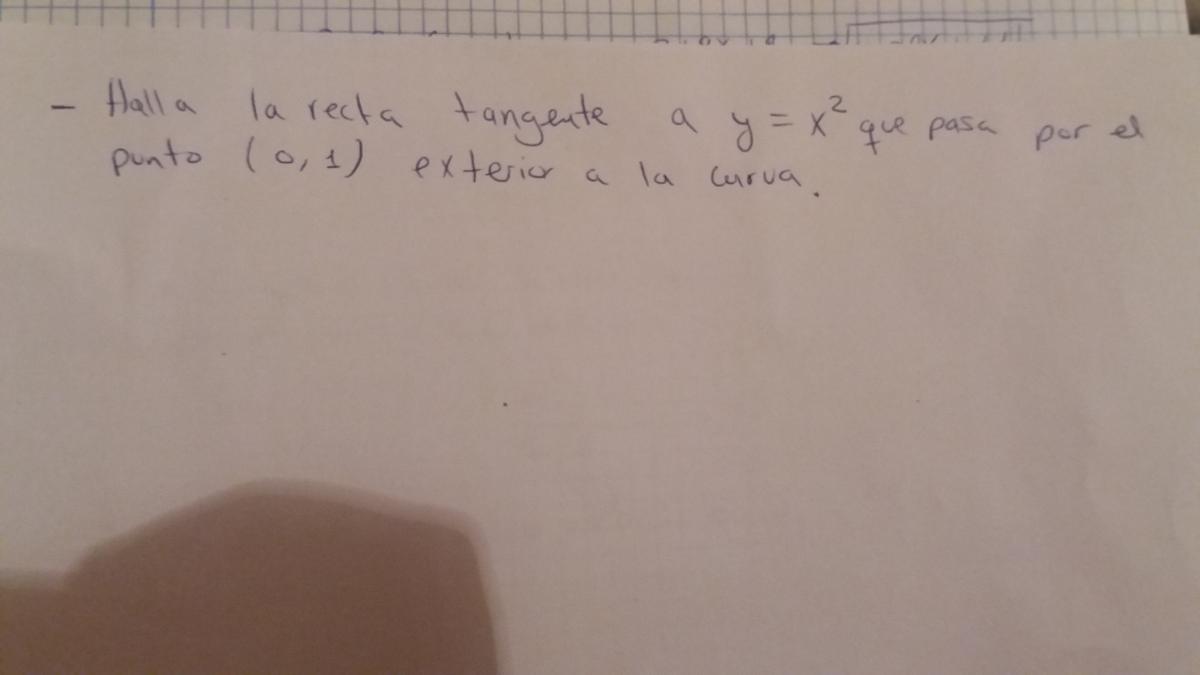 - Halla la recta tangente a y = x² que pasa por el
punto (0,1) exterior a la curva.